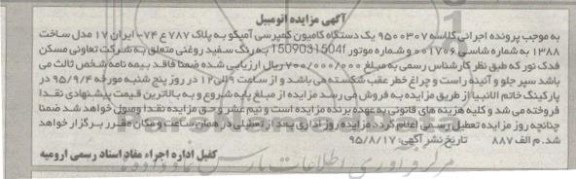 آگهی مزایده اتومبیل
به موجب پرونده اجرائی کلاسه ۹۵۰۰۳۰۷ یک دستگاه کامیون کمپرسی آمیکو به پلاک ۷۸۷ع ۷۴- ایران ۱۷ مدل ساخت
۱۳۸۸ به شماره شاسی ۰۰۱۷۰۶ و شماره موتور 1509031504f به رنگ سفید روغنی متعلق به شرکت تعاونی مسکن
فدک نور که طبق نظر کارشناس رسمی به مبلغ ۷۰۰/۰۰۰/۰۰۰ ریال ارزیابی شده ضمنا فاقد بیمه نامه شخص ثالث می
باشد سپر جلو و آئینه راست و چراغ خطر عقب شکسته می باشد و از ساعت ۹ الی ۱۲ در روز پنج شنبه مورخه ۹۵/۹/۴ در
پارکینگ خاتم الانبیا از طریق مزایده به فروش می رسد مزایده از مبلغ پایه شروع و به بالاترین قیمت پیشنهادی نقدا
فروخته می شد و کلیه هزینه های قانونی به عهده برنده مزایده است و نیم عشر و حق مزایده نقدا وصول خواهد شد ضمنا
چنانچه روز مزایده تعطیل رسمی اعلام گردد مزایده روز اداری بعد از تعطیلی در همان ساعت و مکان مقرر برگزار خواهد
شد. م الف ۸۸۷ تاریخ نشر آگهی: ۹۵/۸/۱۷
کفیل اداره اجراء مفاد اسناد رسمی ارومیه